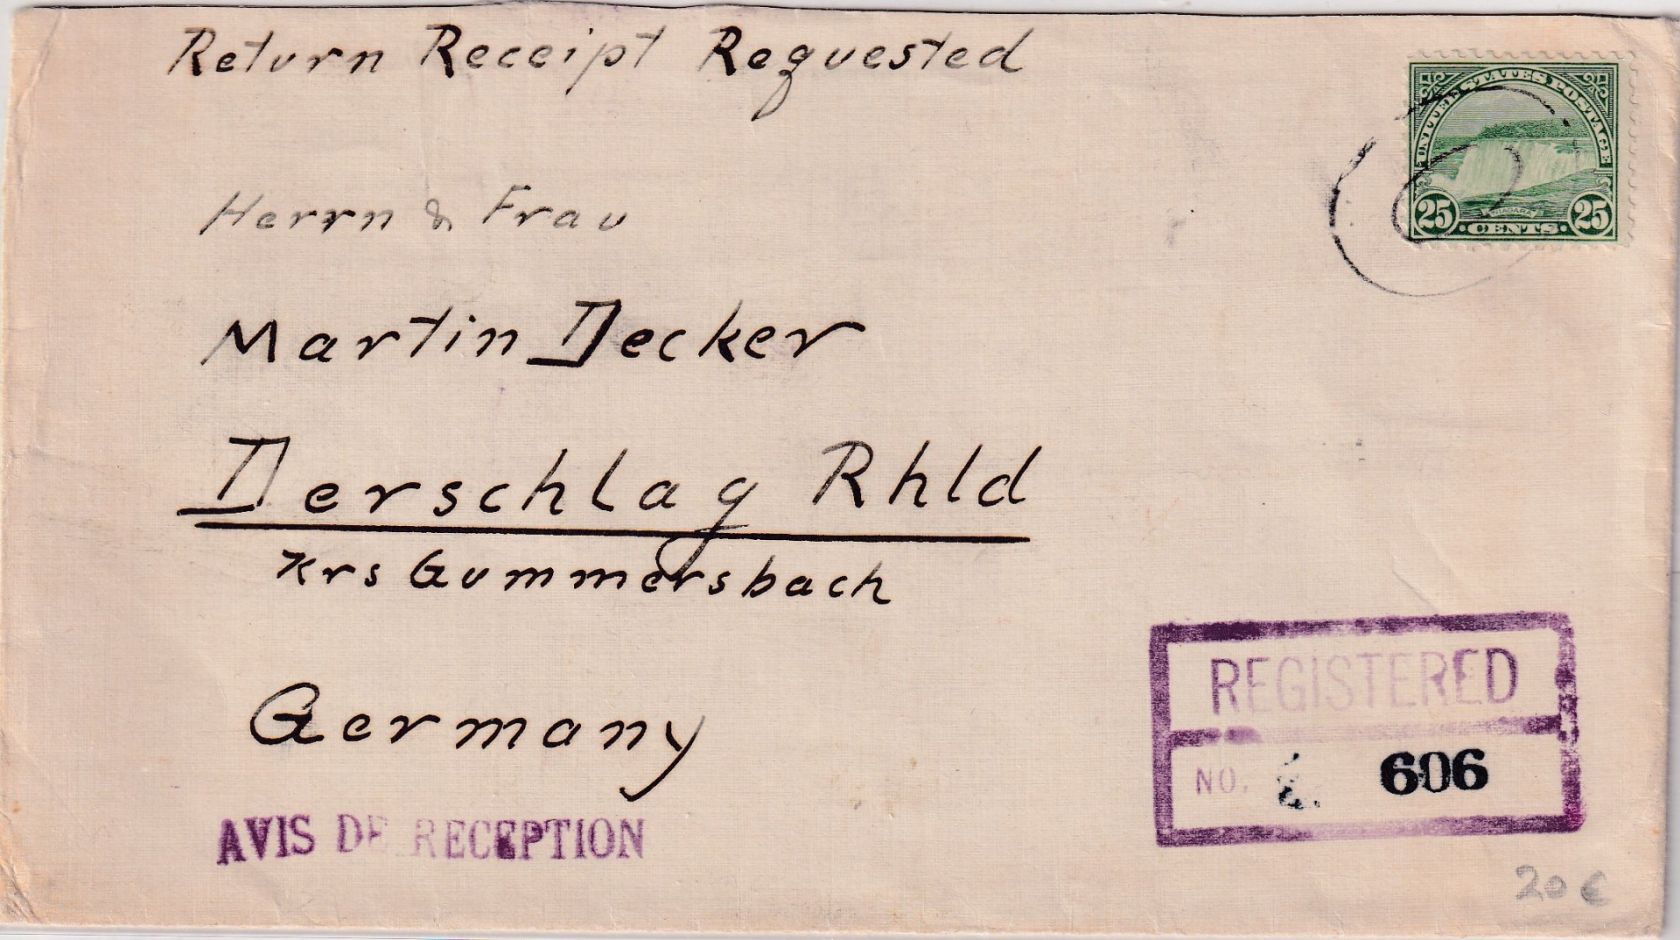 Return Receipt Requested
UNITED STATES POSTAGE
NIAGARA
25 25
CENTS
Herrn & Frau
Martin Decker
Derschlag Rhld
Krs Gummersbach
Germany
REGISTERED
NO. 606
AVIS DE RECEPTION
20 €